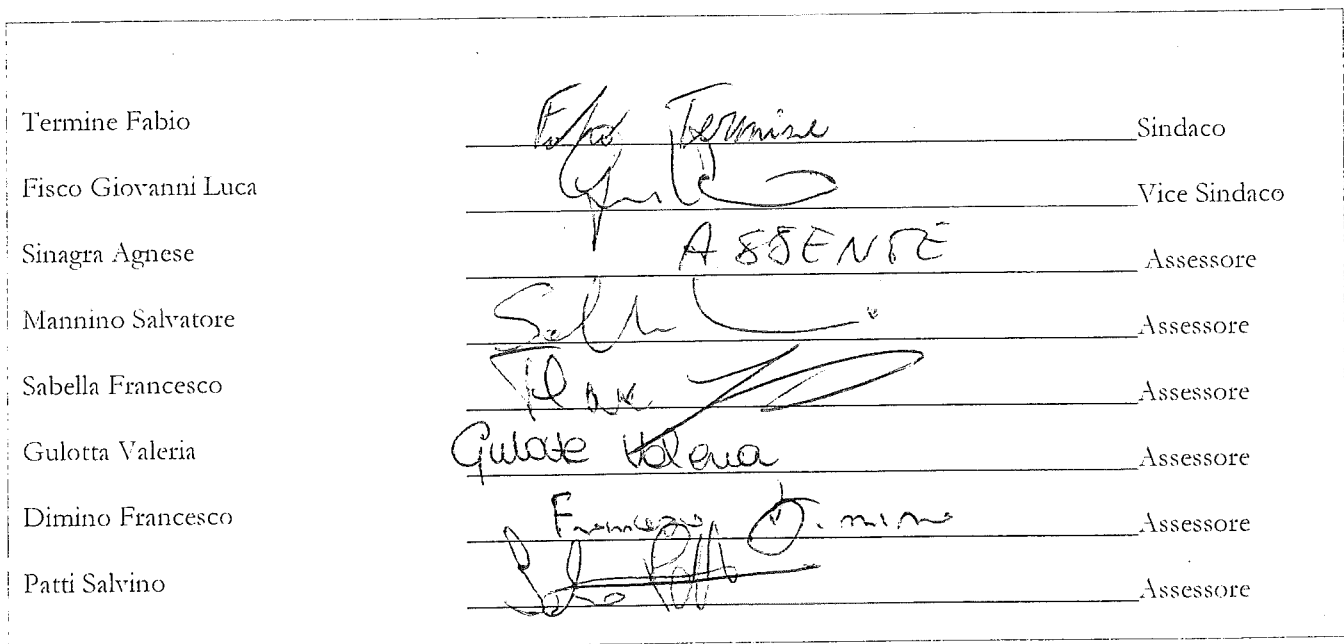 Termine Fabio Fabio Termine Sindaco
Fisco Giovanni Luca Vice Sindaco
Sinagra Agnese ASSENTE Assessore
Mannino Salvatore Assessore
Sabella Francesco Assessore
Gulotta Valeria Gulotta Valeria Assessore
Dimino Francesco Francesco Dimino Assessore
Patti Salvino Assessore